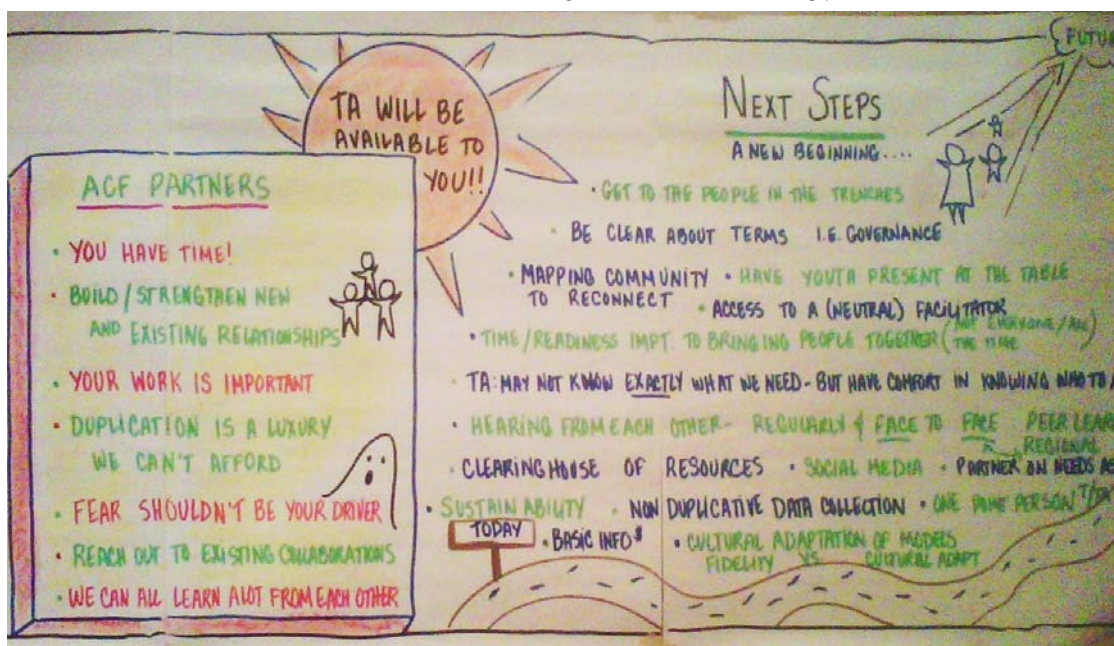 TA WILL BE
AVAILABLE TO
YOU!!
ACF PARTNERS
• YOU HAVE TIME!
• BUILD/STRENGTHEN NEW
AND EXISTING RELATIONSHIPS
• YOUR WORK IS IMPORTANT
• DUPLICATION IS A LUXURY
WE CAN'T AFFORD
• FEAR SHOULDN'T BE YOUR DRIVER
• REACH OUT TO EXISTING COLLABORATIONS
• WE CAN ALL LEARN ALOT FROM EACH OTHER
NEXT STEPS
A NEW BEGINNING....
• GET TO THE PEOPLE IN THE TRENCHES
• BE CLEAR ABOUT TERMS I.E. GOVERNANCE
• MAPPING COMMUNITY
TO RECONNECT
• HAVE YOUTH PRESENT AT THE TABLE
• ACCESS TO A (NEUTRAL) FACILITATOR
• TIME/READINESS IMPT. TO BRINGING PEOPLE TOGETHER (NOT EVERYONE/ALL
THE TIME)
• TA: MAY NOT KNOW EXACTLY WHAT WE NEED - BUT HAVE COMFORT IN KNOWING WHO TO
• HEARING FROM EACH OTHER - REGULARLY & FACE TO FACE PEER
REGIONAL
• CLEARINGHOUSE OF RESOURCES • SOCIAL MEDIA • PARTNER ON NEEDS
• SUSTAINABILITY • NON DUPLICATIVE DATA COLLECTION • ONE PERSON
TODAY
• BASIC INFO
• CULTURAL ADAPTATION OF MODELS
FIDELITY VS. CULTURAL ADAPT